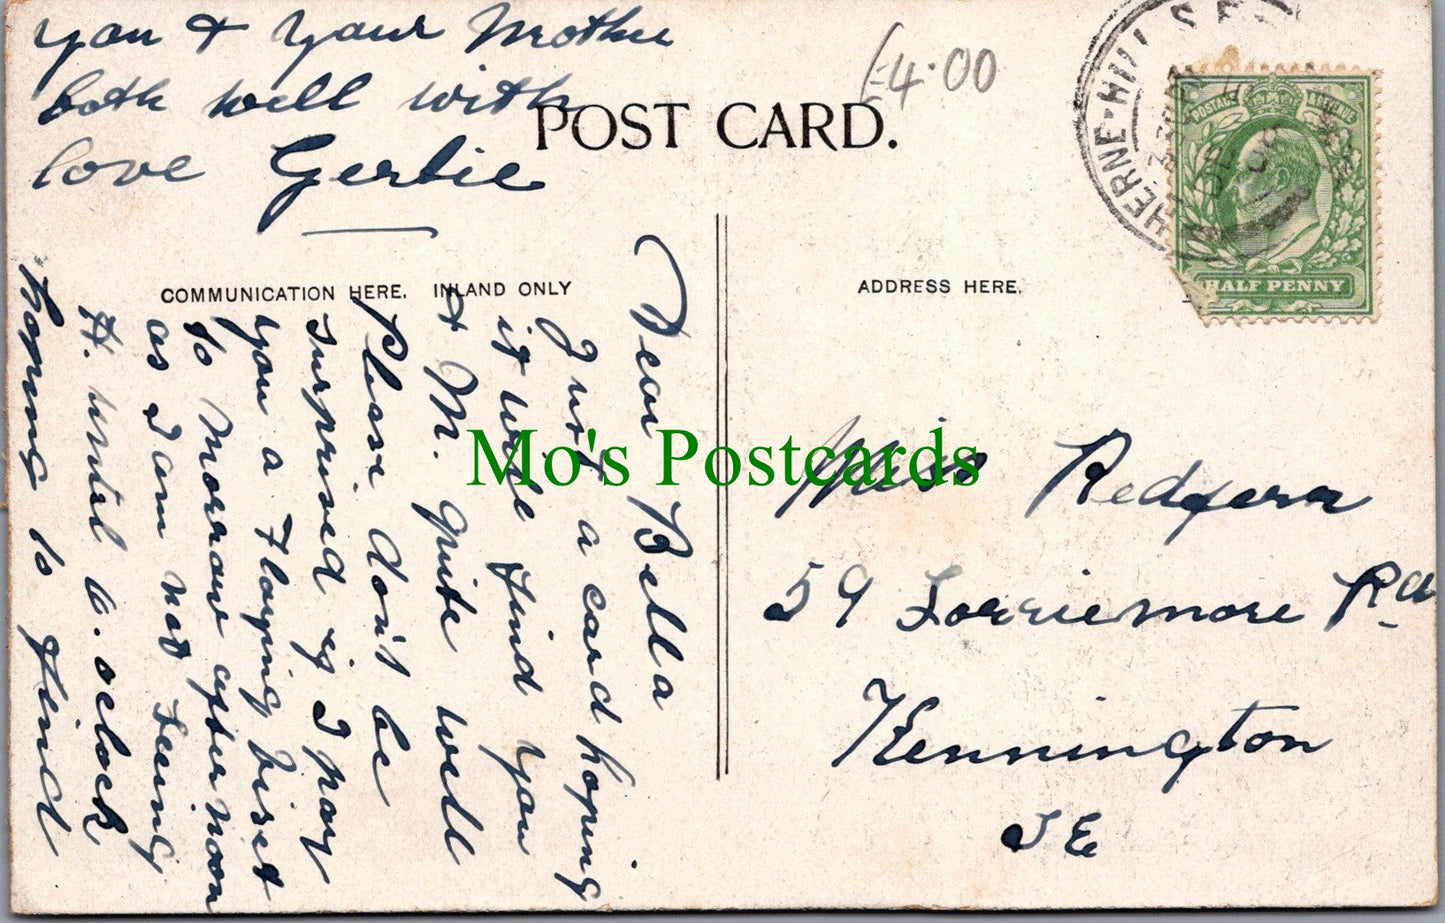 Dear Bella
Just a card hoping
it will find you
& M. quite well
Please don't be
surprised if I pay
you a Flaying Visit
to Morrow after noon
as I am not Seeing
H. until 6. oclock
hoping to find
you & your Mother
both well with
love Gertie
POST CARD.
£4.00
HERNE-HILL S.E.
POSTAGE REVENUE
HALF PENNY
COMMUNICATION HERE. INLAND ONLY
ADDRESS HERE.
Miss Redfern
59 Lorriemore Rd
Kennington
SE
Mo's Postcards